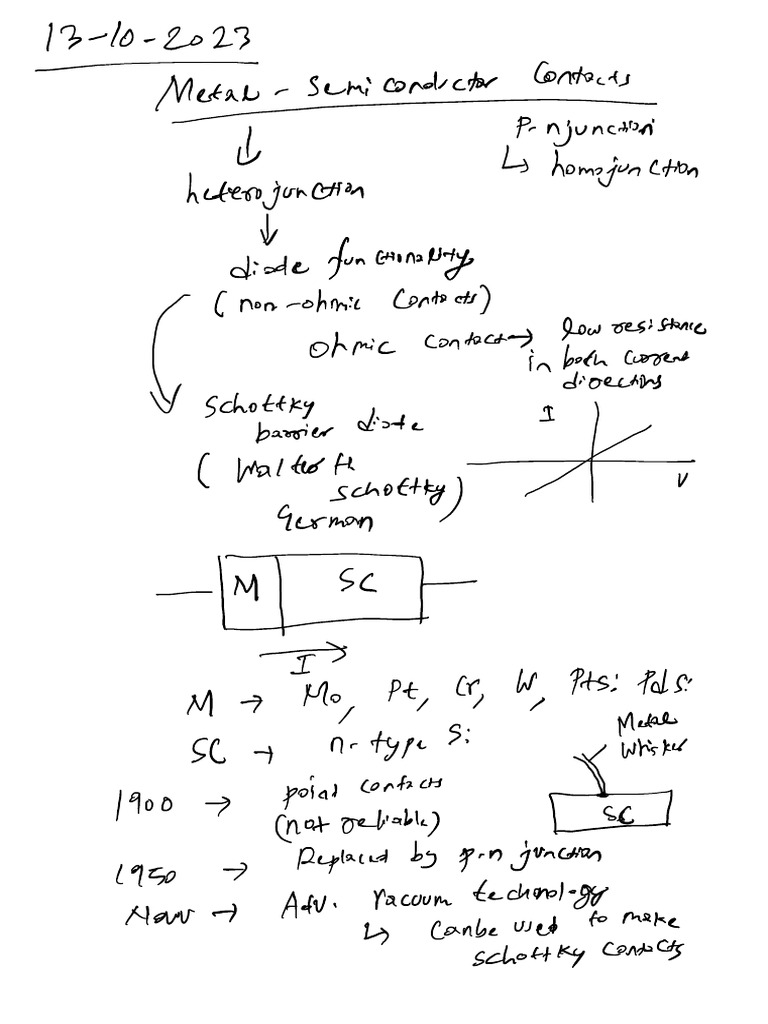 13-10-2023
Metal - Semiconductor Contacts
↓
P-n junction
↳ homojunction
heterojunction
↓
diode functionality
(non-ohmic contacts)
ohmic contact → low resistance
in both current
directions
Schottky
barrier diode
(Walter H
Schottky)
German
I
V
M SC
I
M → Mo, Pt, Cr, W, PtSi PdSi
SC → n-type Si
Metal
Whisker
SC
1900 → point contacts
(not reliable)
1950 → Replaced by p-n junction
Now → Adv. vacuum technology
↳ Can be used to make
Schottky contacts